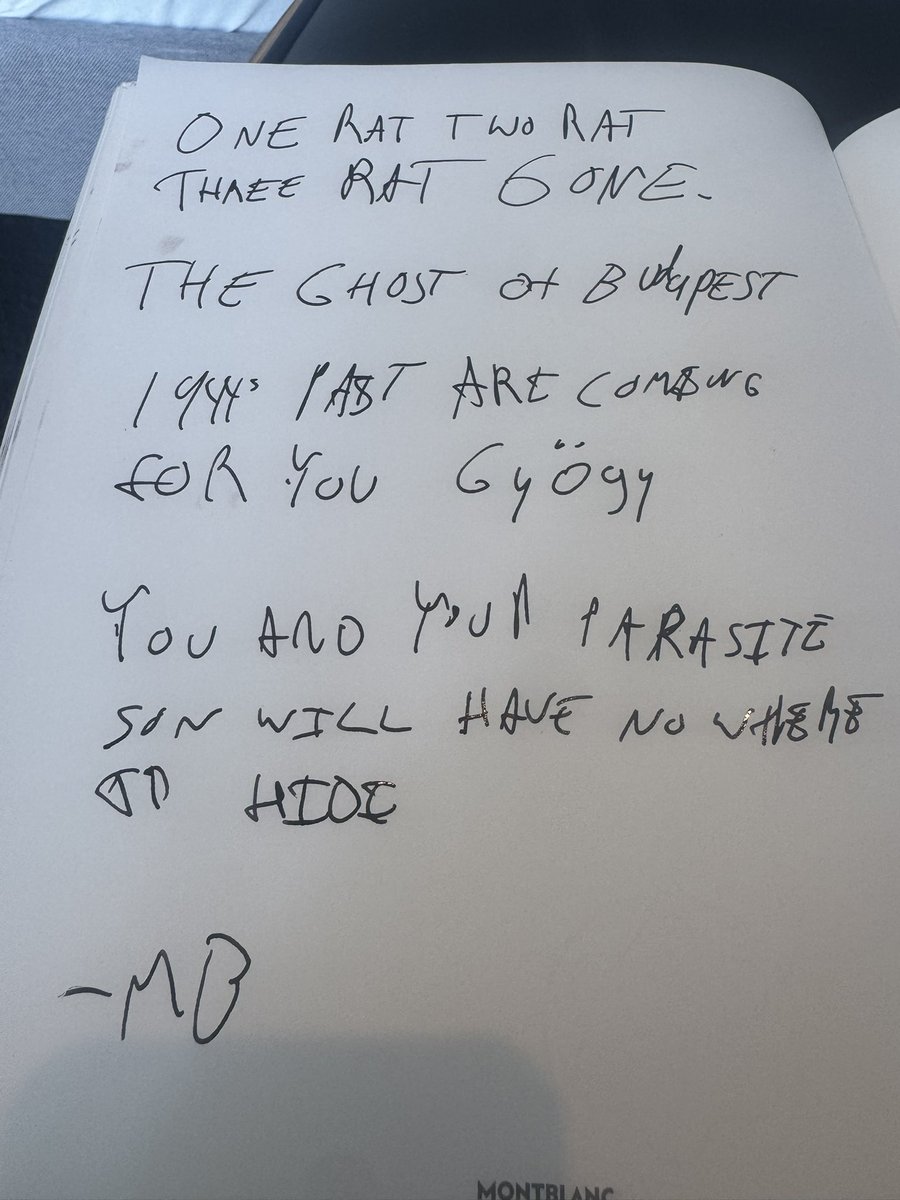 ONE RAT TWO RAT
THREE RAT GONE.
THE GHOST Of BUdAPEST
1944s PAST ARE COMING
FOR YOU GyÖgy
YOU AND YOUR PARASITE
SON WILL HAVE NO WHERE
TO HIDE
-MB
MONTBLANC